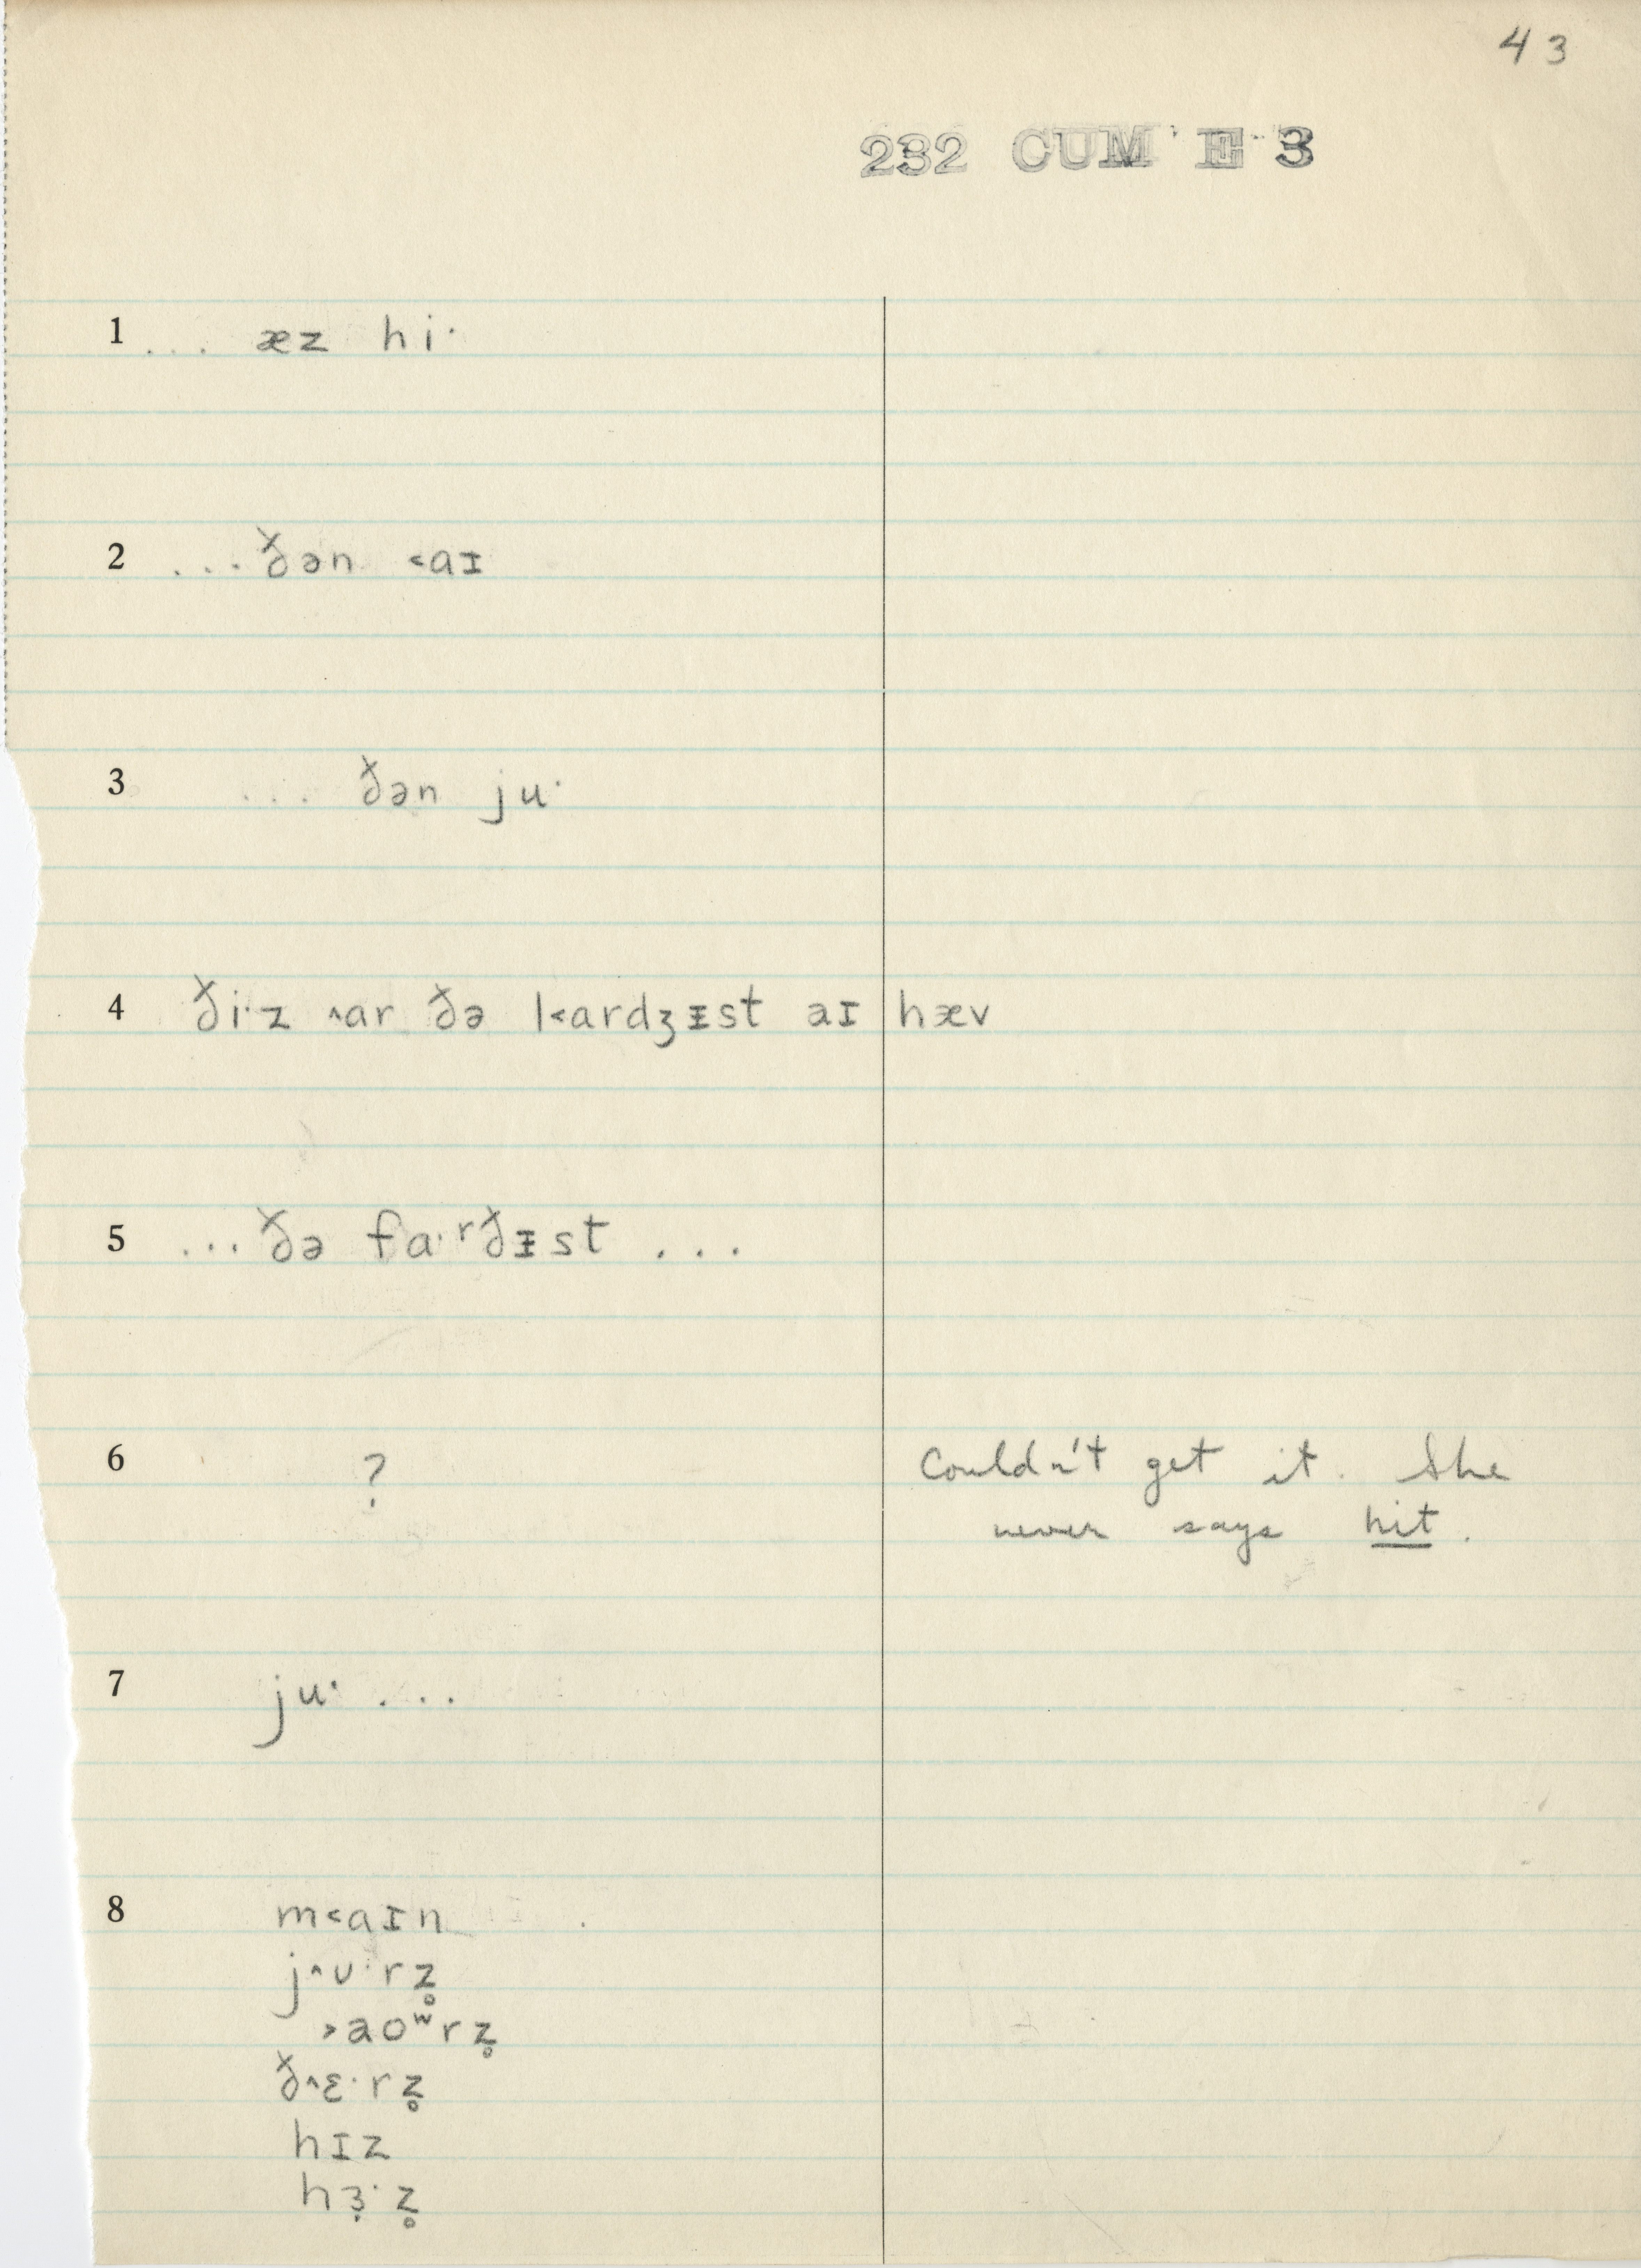 43
232 CUM E 3
1 ... æz hi·
2 ... ðən ˂aɪ
3 ... ðən ju·
4 ði·z ˄ar ðə k˂ardʒᵻst aɪ hæv
5 ... ðə fa·ʳðᵻst ...
6 ? Couldn't get it. She
never says hit.
7 ju· ...
8 m˂aɪn
j˄ʊ·rz̥
˃aoʷrz̥
ð˄ɛ·rz̥
hɪz
hɜ̣·z̥